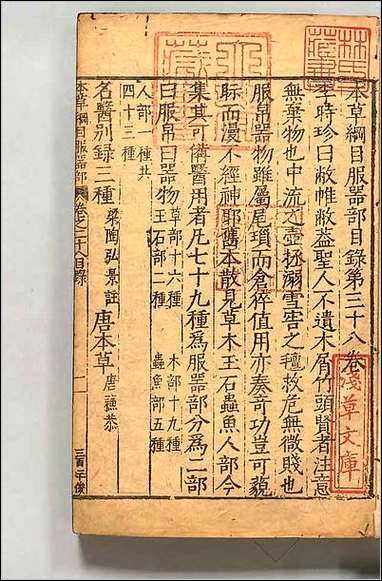 本草綱目服器部目錄第三十八卷
李時珍曰敝帷敝蓋聖人不遺木屑竹頭賢者注意
無棄物也中流之壺拯溺雪窖之氊救危無微賤也
服帛器物雖屬尾瑣而倉猝值用亦奏奇功豈可藐
視而漫不經神耶舊本散見草木玉石蟲魚人部今
集其可備醫用者凡七十九種爲服器部分爲二部
曰服帛曰器物 草部十六種 木部十九種
玉石部二種 蟲魚部五種
人部一種共
四十三種
名醫別錄三種 梁陶弘景註 唐本草 唐蘇恭
本草綱目服器部 卷之三十八目錄 一
淺草文庫
林氏
藏書